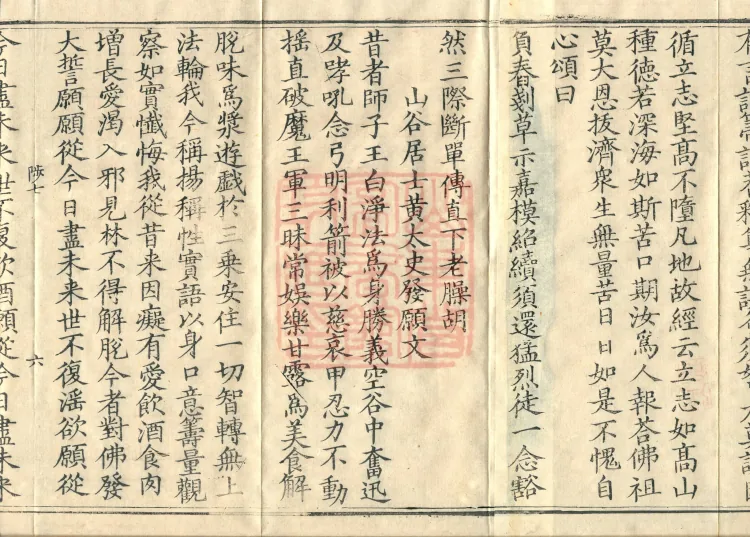 循立志堅髙不墮凡地故經云立志如髙山
種徳若深海如斯苦口期汝爲人報荅佛祖
莫大恩拔濟衆生無量苦日日如是不愧自
心頌曰
負舂剗草示嘉模紹續須還猛烈徒一念豁
然三際斷單傳直下老臊胡
山谷居士黄太史發願文
昔者師子王白淨法爲身勝義空谷中奮迅
及哮吼念弓明利箭被以慈哀甲忍力不動
揺直破魔王軍三昧常娱樂甘露爲美食解
脱味爲漿遊戲於三乗安住一切智轉無上
法輪我今稱揚稱性實語以身口意籌量觀
察如實懺悔我從昔来因癡有愛飲酒食肉
増長愛渇入邪見林不得解脱今者對佛發
大誓願願從今日盡未来世不復滛欲願從
陟七 六
今日盡未来世不復飲酒願從今日盡未来